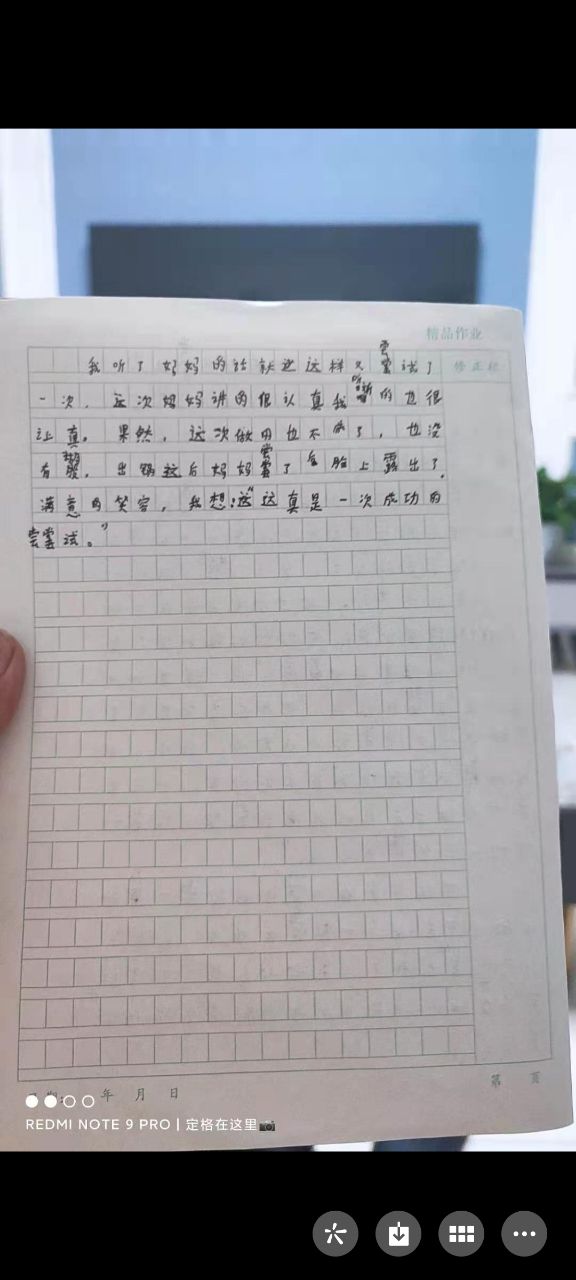 精品作业
修正栏
我听了妈妈的话就这样又尝试了
一次，这次妈妈讲的很认真我听的也很
认真。果然，这次做的也不了，也没
有，出锅后妈妈尝了脸上露出了
满意的笑容，我想:"这真是一次成功的
尝试。"
年 月 日
第 页
REDMI NOTE 9 PRO | 定格在这里